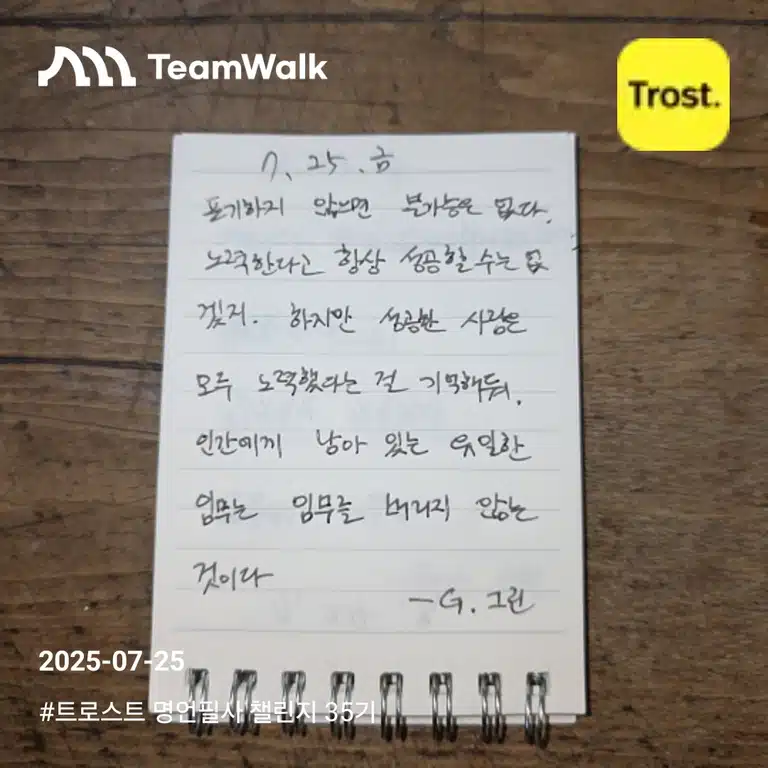 TeamWalk
Trost.
7. 25. 금
포기하지 않으면 불가능은 없다.
노력한다고 항상 성공할 수는 없
겠지. 하지만 성공한 사람은
모두 노력했다는 걸 기억해둬.
인간에게 남아 있는 유일한
임무는 임무를 버리지 않는
것이다
- G. 그린
2025-07-25
#트로스트 명언필사 챌린지 35기